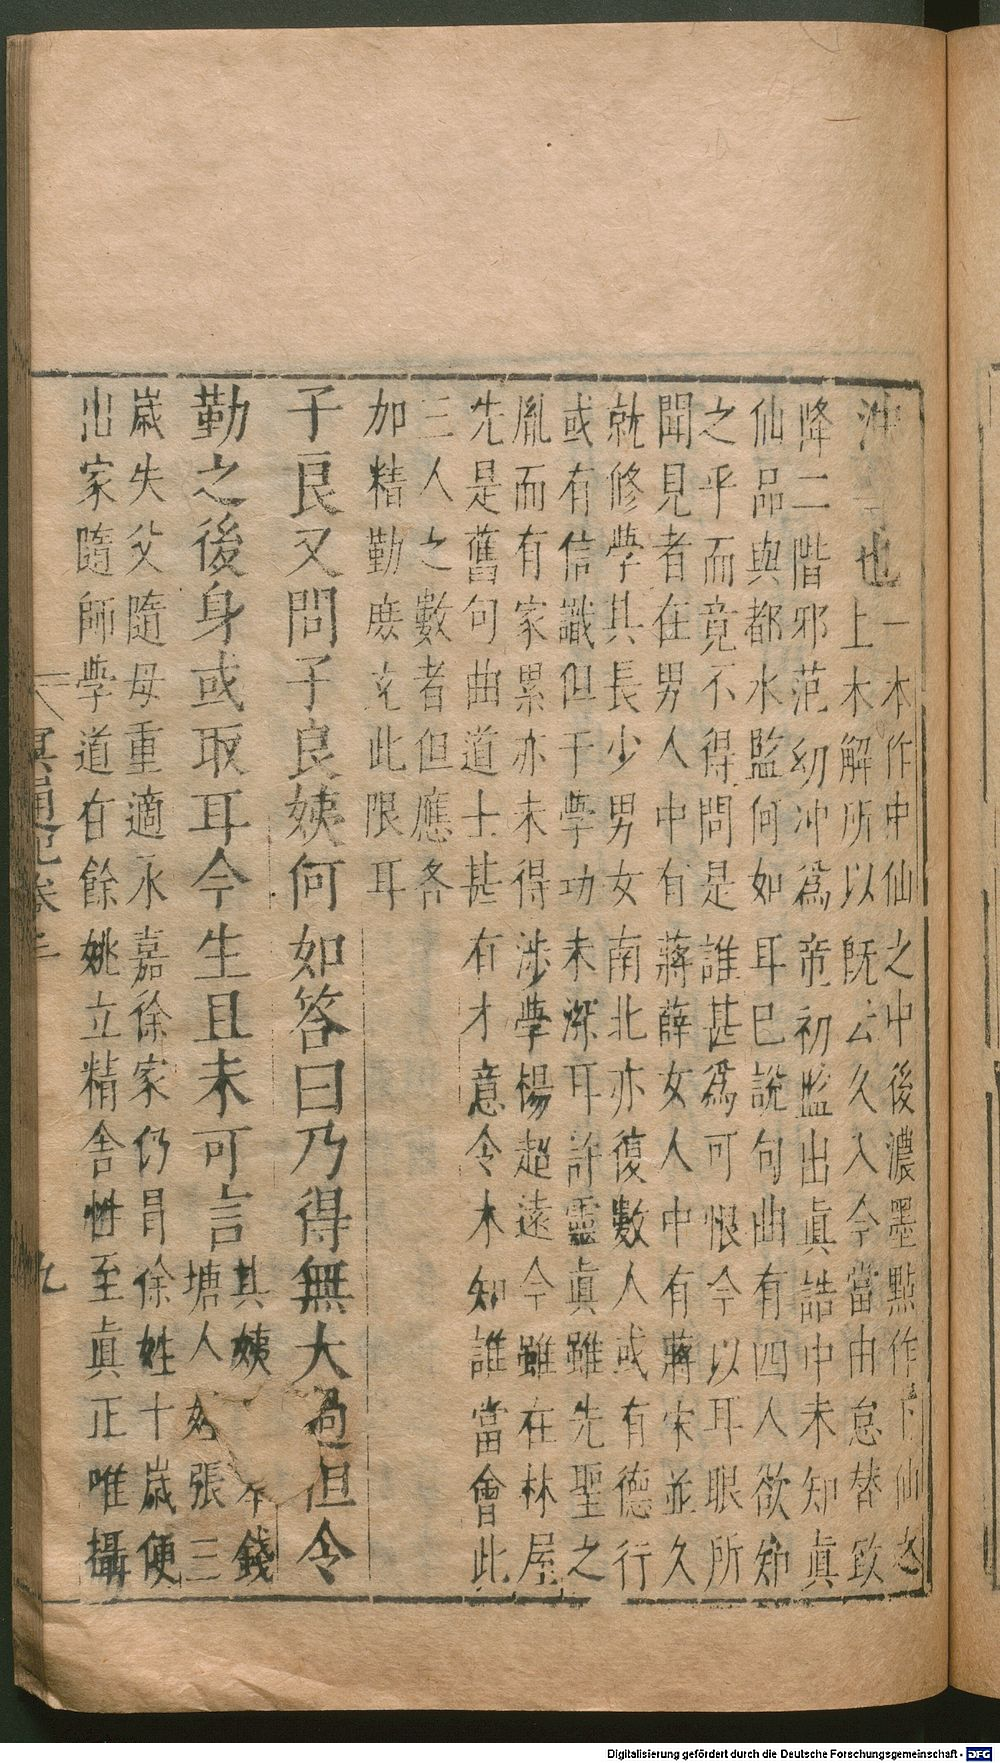 沖　也
一本作中仙之中後濃墨點作下仙之
上木解所以既云久入今當由怠替致
降二階邪范幼沖爲帝初監出眞誥中未知眞
仙品與都水監何如耳巳說句曲有四人欲知
之乎而竟不得問是誰甚爲可恨今以耳眼所
聞見者在男人中有蔣薛女人中有蔣宋並久
就修學其長少男女南北亦復數人或有德行
或有信識但于學功未深耳許靈眞雖先聖之
胤而有家累亦未得涉學楊超遠今雖在林屋
先是舊句曲道士甚有才意令木知誰當會此
三人之數者但應各
加精勤庶充此限耳
子良又問子良姨何如答曰乃得無大過但令
勤之後身或取耳今生且未可言
其姨　本錢
塘人姓張三
歲失父隨母重適永嘉徐家仍冒徐姓十歲便
出家隨師學道在餘姚立精舍性至眞正唯攝
冥通記卷二
九
Digitalisierung gefördert durch die Deutsche Forschungsgemeinschaft - DFG